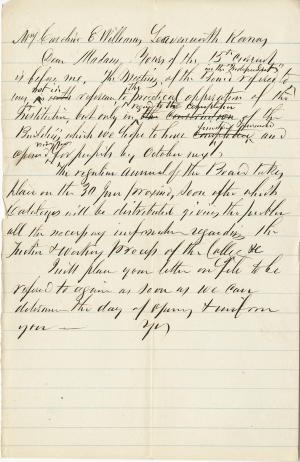 Mrs Caroline E Williams Leavenworth Kansas
Dear Madam, Yours of the 15th
in the "Independent"
is before me. The Meeting of the Board refers to
not in
any reference to the practical operation of the
Institution, but only in regard to the completion
the construction of the
Building, which we hope to have and
open for pupils by October next
The regular annual of the Board takes
place on the 30 June proximo, soon after which
Catalogues will be distributed giving the public
all the necessary information regarding the
& Working Process of the College &c
I will place your letter on file to be
referred to again as soon as we can
determine the day of opening & inform
you — Yrs